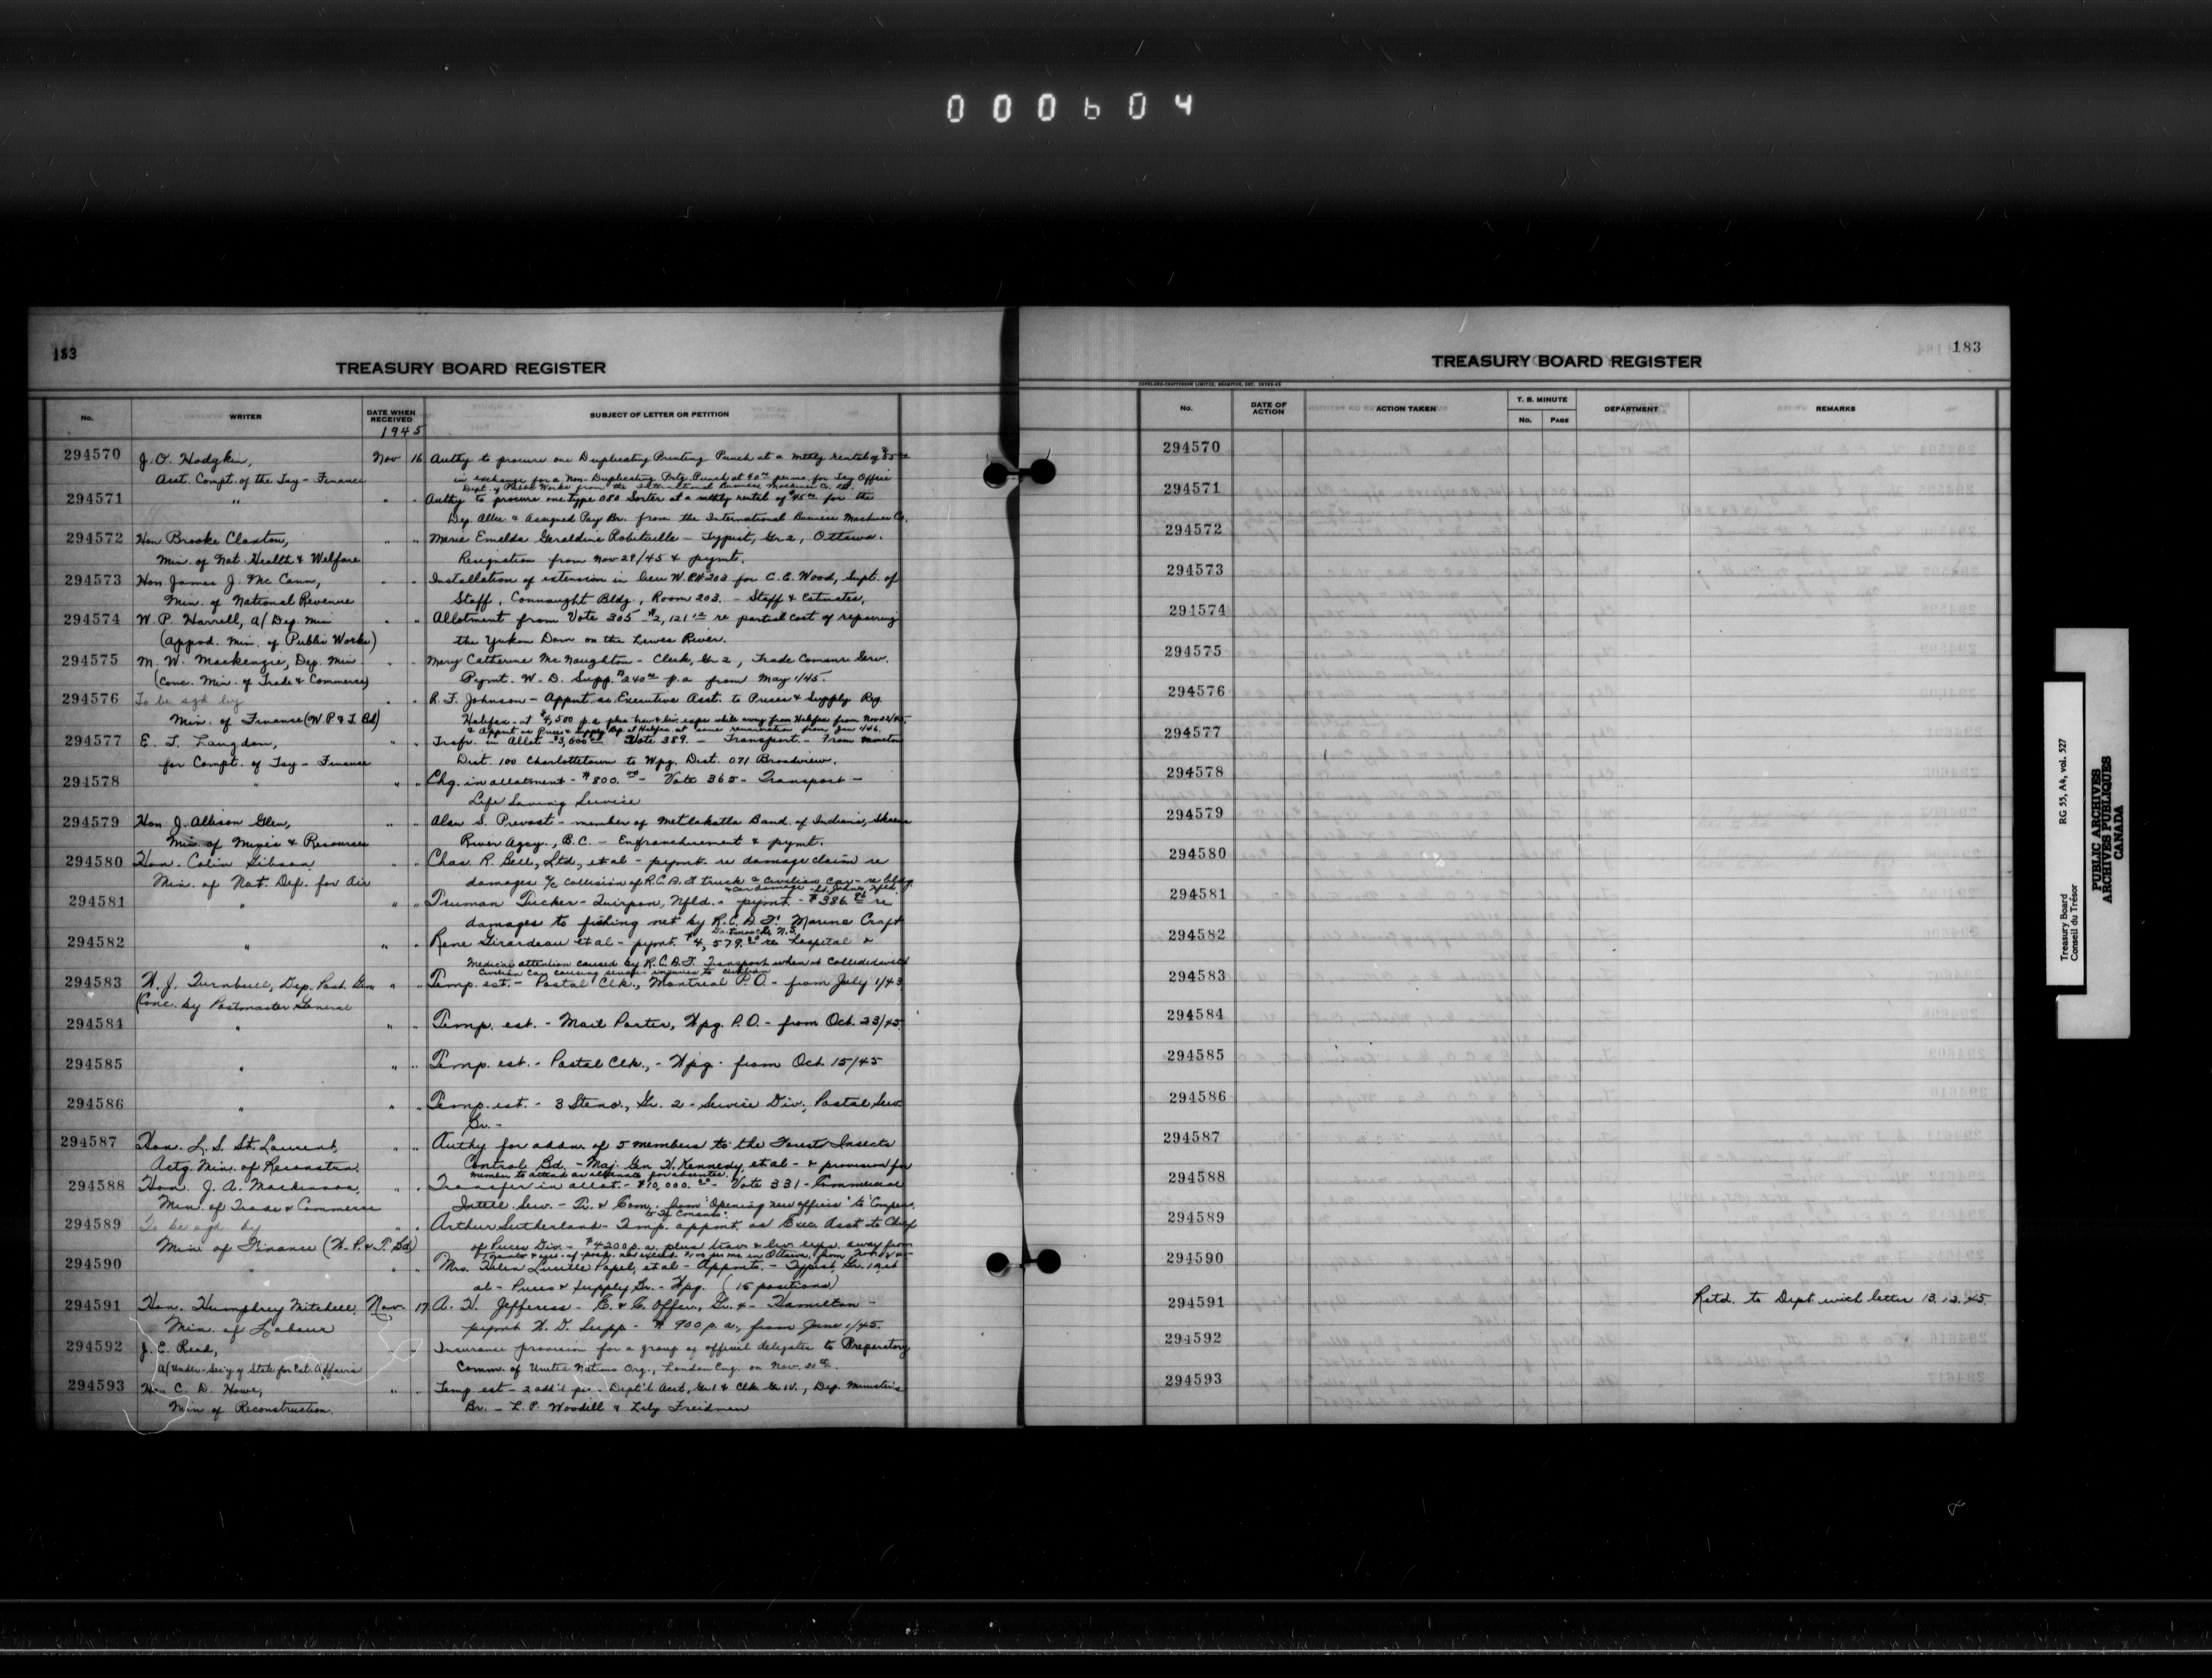 000604
183
TREASURY BOARD REGISTER
No. WRITER DATE WHEN RECEIVED SUBJECT OF LETTER OR PETITION
1945
294570 J.O. Hodgkin, Nov 16 Authy to procure one Duplicating Printing Punch at a mthly rental of $55
Asst. Compt. of the Tsy - Finance in exchange for a Non-Duplicating Prtg Punch at 40 per mo. for Tsy Office
Dept. of Public Works from the International Business Machines Co. Ltd.
294571 " " " Authy to procure one type 080 Sorter at a mthly rental of $45 for the
Dep. Allce & Assigned Pay Br. from the International Business Machines Co.
294572 Hon Brooke Claxton, " " Marie Emelda Geraldine Robitaille - Typist, Gr 2, Ottawa.
Min. of Nat. Health & Welfare Resignation from Nov 29/45 & paymt.
294573 Hon James J. McCann, " " Installation of extension in lieu W.P.# 203 for C.E. Wood, Supt. of
Min. of National Revenue Staff, Connaught Bldg., Room 203. - Staff &
294574 W.P. Harrell, a/Dep. Min " " Allotment from Vote 305 - $2,121 12 re partial cost of repairing
(Appod. Min. of Public Works) the Yukon Dam on the Lewes River.
294575 M.W. Mackenzie, Dep. Min. " " Mary Catherine McNaughton - Clerk, Gr 2, Trade Commr Serv.
(Conc. Min. of Trade & Commerce) Paymt. W.D. Supp. $240 p.a from May 1/45.
294576 To be sgd by " " R.F. Johnson - Appmt. as Executive Asst. to Prices & Supply Rep
Min. of Finance (W.P. & T. Bd) Halifax - at $4,500 p.a plus trav & liv. exps while away from Halifax from Nov 22/45.
& Appmt as Prices & Supply Rep. at Halifax at same remuneration from Jan 1/46.
294577 E.T. Langdon, " " Trsfr. in Allot - $3,000 - Vote 389. - Transport. - From Moncton
for Compt. of Tsy - Finance Dist. 100 Charlottetown to Wpg. Dist. 071 Broadview.
294578 " " " Chg. in allotment - $800. - Vote 365 - Transport -
Life Saving Service
294579 Hon J. Allison Glen, " " Alan S. Prevost - member of Metlakatla Band of Indians, Skeena
Min. of Mines & Resources River Agcy., B.C. - Enfranchisement & pymt.
294580 Hon. Colin Gibson, " " Chas. R. Bell, Ltd., et al - pymt. re damage claim re
Min. of Nat. Def. for Air damages a/c collision of R.C.A.F truck & civilian car - re bldg.
& car damage - St. Johns, Nfld.
294581 " " " Truman Tucker - Quirpon, Nfld. - pymt - $386. re
damages to fishing net by R.C.A.F. Marine Craft
294582 " " " Rene Girardeau et al - pymt. $4,579.20 re hospital &
Dartmouth N.S.
Medical attention caused by R.C.A.F. Transport when it collided with
civilian car causing severe injuries to civilian
294583 W.J. Turnbull, Dep. Post. Gen " " Temp. est. - Postal Clk., Montreal P.O. - from July 1/43
(Conc. by Postmaster General
294584 " " " Temp. est. - Mail Porter, Wpg. P.O. - from Oct. 23/45.
294585 " " " Temp. est. - Postal Clk., - Wpg - from Oct. 15/45
294586 " " " Temp. est. - 3 Steno., Gr. 2 - Service Div., Postal Serv.
Br. -
294587 Hon. L.S. St. Laurent, " " Authy for addn. of 5 members to the Forest Insects
Actg. Min. of Reconstrn. Control Bd. - Maj. Gen H. Kennedy, et al - & provision for
member to attend as alternate for absentee.
294588 Hon. J.A. MacKinnon, " " Transfer in allot. - $10,000. - Vote 331 - Commercial
Min. of Trade & Commerce Intell. Serv. - Tr. & Com. from "Opening new offices" to "Compen.
294589 To be sgd. by " " Arthur Sutherland - Temp. appmt. as Exec. Asst to Chief
Min of Finance (W.P. & T. Bd) of Prices Div. - $4200 p.a. plus trav & liv. exps. away from
294590 " " " Mrs. Helen Lucille Papel, et al - Appmts. - Typist, Gr. 1A, et
al - Prices & Supply Br. - Wpg. (15 positions)
294591 Hon. Humphrey Mitchell, Nov. 17 A.H. Jefferess - E. & C. Offcr., Gr. 4 - Hamilton -
Min. of Labour pymt W.D. Supp - $900 p.a., from June 1/45.
294592 J.E. Read, " " Insurance provision for a group of official delegates to Preparatory
a/Under-Sec'y of State for Ext. Affairs Comm. of United Nations Org., London Eng. on Nov. 20th.
294593 Hon C.D. Howe, " " Temp. est - 2 add'l pos. - Dept'l Acct, Gr 1 & Clk Gr IV., Dep. Minister's
Min of Reconstruction. Br. - L.P. Woodill & Lily Freidman
183
TREASURY BOARD REGISTER
COPELAND-CHATTERSON LIMITED, BRAMPTON, ONT.
No. DATE OF ACTION ACTION TAKEN T. B. MINUTE No. PAGE DEPARTMENT REMARKS
294570
294571
294572
294573
294574
294575
294576
294577
294578
294579
294580
294581
294582
294583
294584
294585
294586
294587
294588
294589
294590
294591 Retd. to Dept with letter 13.12.45.
294592
294593
Treasury Board RG 55, A4, vol. 527
Conseil du Trésor
PUBLIC ARCHIVES
ARCHIVES PUBLIQUES
CANADA